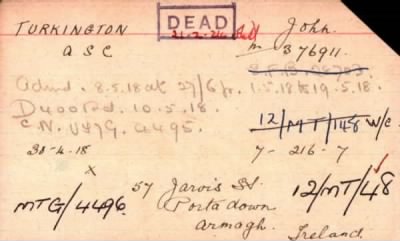 DEAD
TURKINGTON John.
A S C 21-2-216 M/376911.
Admd. 8.5.18 at 27/6 fr. 1.5.18 to 19.5.18.
D400 Pd. 10.5.18.
C.N. U47G. 4495. 12/MT/148 W/C
30-4-18 7-216-7
x
MTG/4496. 57 Jarvis St. 12/MT/48
Portadown
Armagh. Ireland